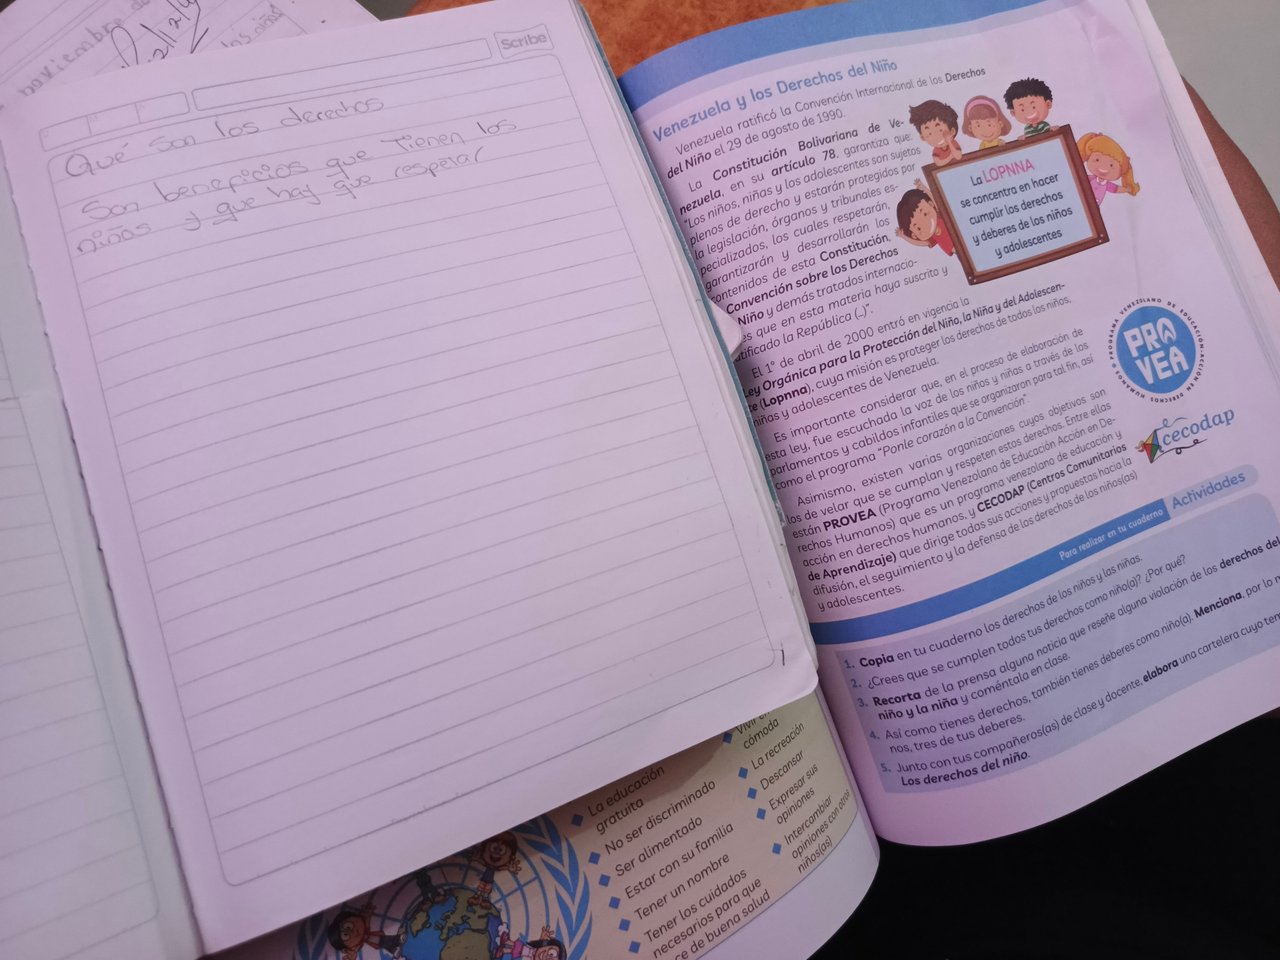 noviembre de
Scribe
Qué son los derechos
Son beneficios que tienen los
niños y que hay que respetar
Venezuela y los Derechos del Niño
Venezuela ratificó la Convención Internacional de los Derechos
del Niño el 29 de agosto de 1990.
La Constitución Bolivariana de Ve-
nezuela, en su artículo 78, garantiza que:
"Los niños, niñas y los adolescentes son sujetos
plenos de derecho y estarán protegidos por
la legislación, órganos y tribunales es-
pecializados, los cuales respetarán,
garantizarán y desarrollarán los
contenidos de esta Constitución,
Convención sobre los Derechos
Niño y demás tratados internacio-
es que en esta materia haya suscrito y
tificado la República (...)".
La LOPNNA
se concentra en hacer
cumplir los derechos
y deberes de los niños
y adolescentes
El 1° de abril de 2000 entró en vigencia la
Ley Orgánica para la Protección del Niño, la Niña y del Adolescen-
te (Lopnna), cuya misión es proteger los derechos de todos los niños,
niñas y adolescentes de Venezuela.
Es importante considerar que, en el proceso de elaboración de
esta ley, fue escuchada la voz de los niños y niñas a través de los
parlamentos y cabildos infantiles que se organizaron para tal fin, así
como el programa "Ponle corazón a la Convención".
Asimismo, existen varias organizaciones cuyos objetivos son
los de velar que se cumplan y respeten estos derechos. Entre ellas
están PROVEA (Programa Venezolano de Educación Acción en De-
rechos Humanos) que es un programa venezolano de educación y
acción en derechos humanos, y CECODAP (Centros Comunitarios
de Aprendizaje) que dirige todas sus acciones y propuestas hacia la
difusión, el seguimiento y la defensa de los derechos de los niños(as)
y adolescentes.
PROGRAMA VENEZOLANO DE EDUCACIÓN-ACCIÓN EN DERECHOS HUMANOS
PRO
VEA
cecodap
Para realizar en tu cuaderno
Actividades
1. Copia en tu cuaderno los derechos de los niños y las niñas.
2. ¿Crees que se cumplen todos tus derechos como niño(a)? ¿Por qué?
3. Recorta de la prensa alguna noticia que reseñe alguna violación de los derechos del
niño y la niña y coméntala en clase.
4. Así como tienes derechos, también tienes deberes como niño(a). Menciona, por lo
nos, tres de tus deberes.
5. Junto con tus compañeros(as) de clase y docente, elabora una cartelera cuyo
Los derechos del niño.
La educación
gratuita
No ser discriminado
Ser alimentado
Estar con su familia
Tener un nombre
Tener los cuidados
necesarios para que
ce de buena salud
cómoda
La recreación
Descansar
Expresar sus
opiniones
Intercambiar
opiniones con otros
niños(as)